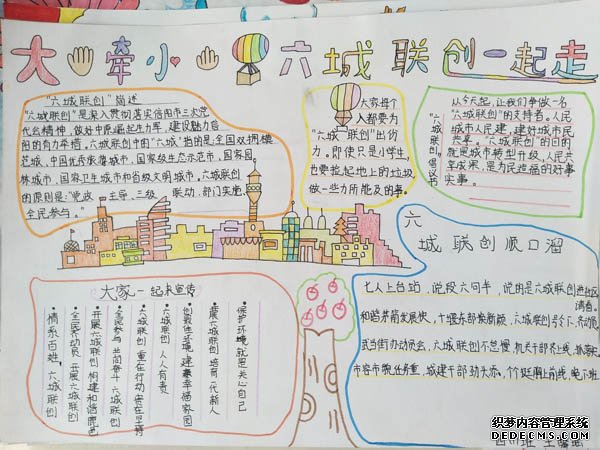 大 牵小 六城联创一起走
"六城联创"简述
"六城联创"是深入贯彻落实信阳市三次党
代会精神，做好中原崛起生力军，建设魅力信
阳的有力举措。六城联创中的"六城"指的是：全国双拥模
范城、中国优秀旅游城市、国家级生态示范市、国家园
林城市、国家卫生城市和省级文明城市。六城联创
的原则是："党政 主导、三级 联动、部门实施、
全民参与。"
大家每个
人都要为
"六城联创"出份
力。即使只是小学生，
也要捡起地上的垃圾，
做一些力所能及的事。
"六城联创"倡议书
从今天起，让我们争做一名
"六城联创"的支持者。人民
城市人民建，建好城市民
共享。六城联创的目的
就是城市转型升级，人民共
享成果，是为民造福的好事
实事。
六城联创顺口溜
七人上台站，说段六句半，说的是六城联创进社区
满意。
和谐
发展快，十堰东部换新颜，六城联创
办动员会，六城联创不怠慢，机关干部齐上线，
市容市貌任务重，城建干部劲大添，个个
大家一起来宣传
保护环境就是关心自己
开展六城联创 培育一代新人
创最佳环境 建幸福家园
六城联创 人人有责
六城联创 重在行动贵在坚持
全民参与 共同奋斗 六城联创
开展六城联创 构建和谐鹿邑
全民齐动员 开展六城联创
情系百姓，六城联创